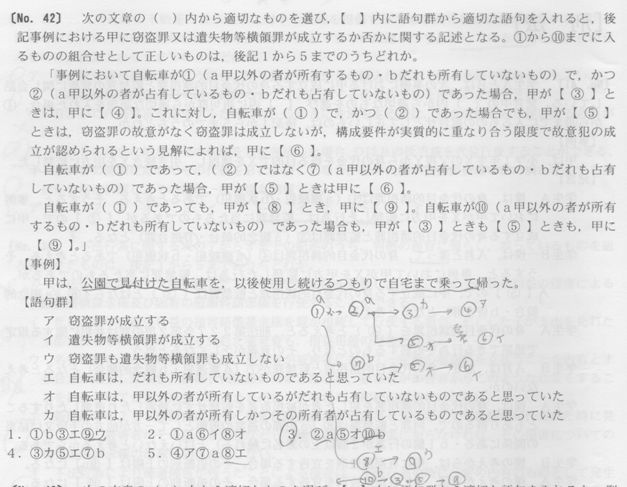 〔No. 42〕　次の文章の（　）内から適切なものを選び，【　】内に語句群から適切な語句を入れると，後
記事例における甲に窃盗罪又は遺失物等横領罪が成立するか否かに関する記述となる。①から⑩までに入
るものの組合せとして正しいものは，後記１から５までのうちどれか。
「事例において自転車が①（ａ甲以外の者が所有するもの・ｂだれも所有していないもの）で，かつ
②（ａ甲以外の者が占有しているもの・ｂだれも占有していないもの）であった場合，甲が【 ③ 】と
きは，甲に【 ④ 】。これに対し，自転車が（ ① ）で，かつ（ ② ）であった場合でも，甲が【 ⑤ 】
ときは，窃盗罪の故意がなく窃盗罪は成立しないが，構成要件が実質的に重なり合う限度で故意犯の成
立が認められるという見解によれば，甲に【 ⑥ 】。
自転車が（ ① ）であって，（ ② ）ではなく⑦（ａ甲以外の者が占有しているもの・ｂだれも占有
していないもの）であった場合，甲が【 ⑤ 】ときは甲に【 ⑥ 】。
自転車が（ ① ）であっても，甲が【 ⑧ 】とき，甲に【 ⑨ 】。自転車が⑩（ａ甲以外の者が所有
するもの・ｂだれも所有していないもの）であった場合も，甲が【 ③ 】ときも【 ⑤ 】ときも，甲に
【 ⑨ 】。」
【事例】
甲は，公園で見付けた自転車を，以後使用し続けるつもりで自宅まで乗って帰った。
【語句群】
ア　窃盗罪が成立する
イ　遺失物等横領罪が成立する
ウ　窃盗罪も遺失物等横領罪も成立しない
エ　自転車は，だれも所有していないものであると思っていた
オ　自転車は，甲以外の者が所有しているがだれも占有していないものであると思っていた
カ　自転車は，甲以外の者が所有しかつその所有者が占有しているものであると思っていた
１．①ｂ③エ⑨ウ　２．①ａ⑥イ⑧オ　３．②ａ⑤オ⑩ｂ
４．③カ⑤エ⑦ｂ　５．④ア⑦ａ⑧エ